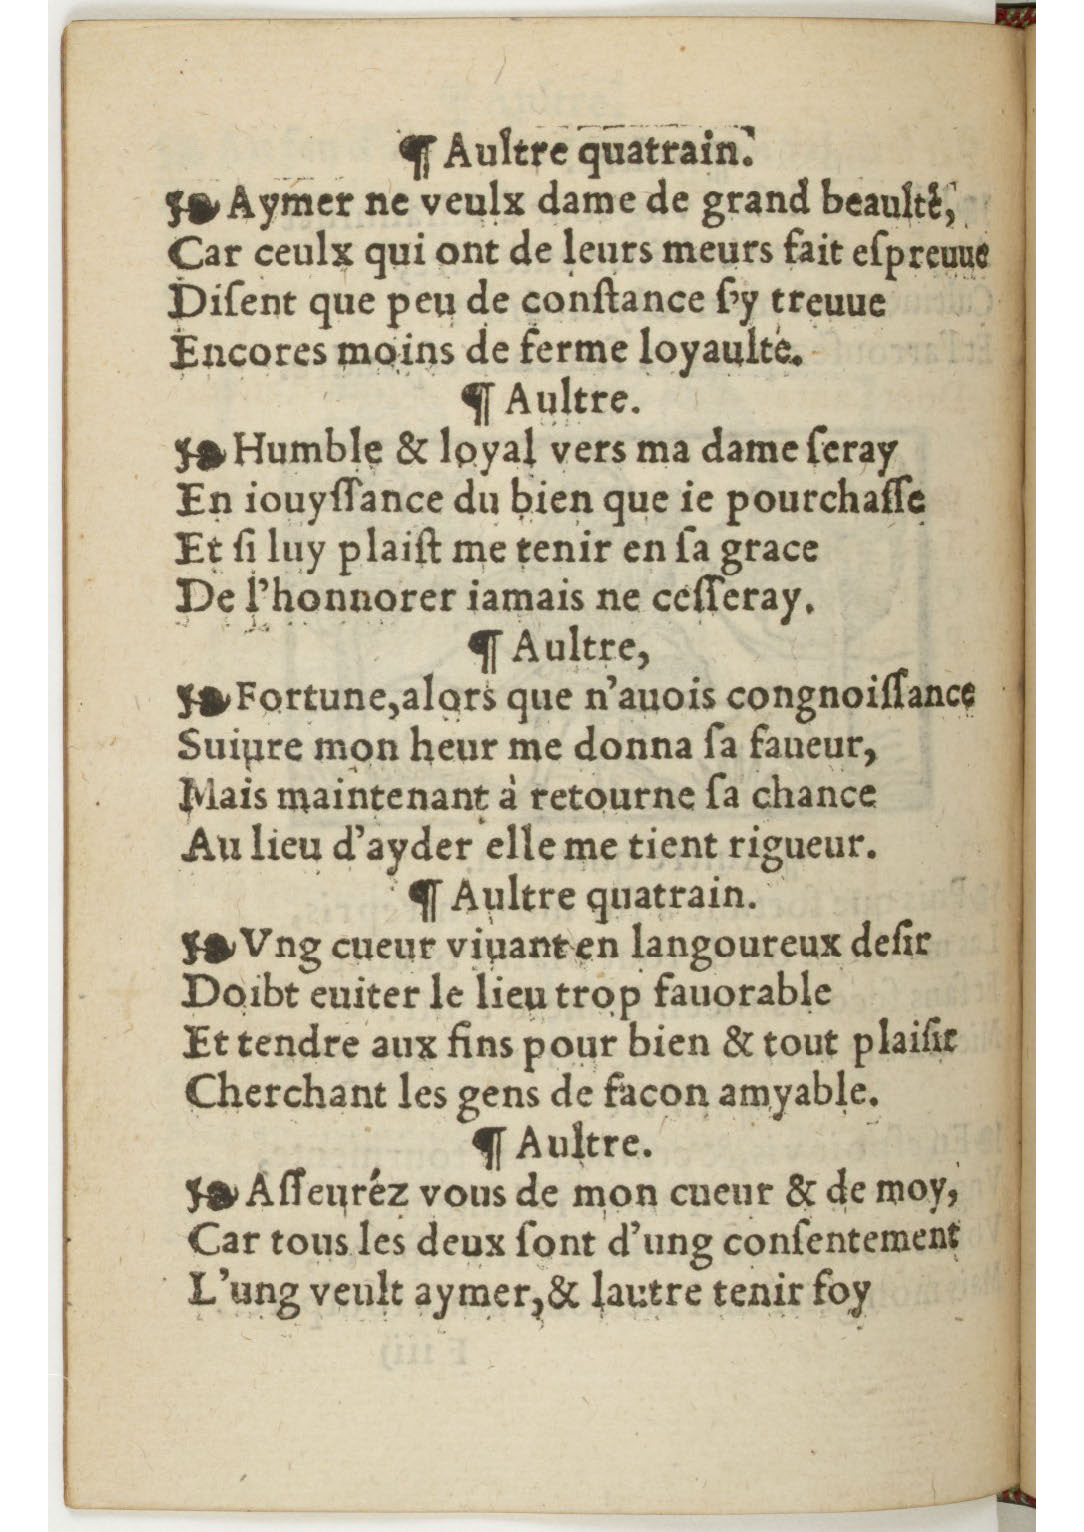 ¶ Aultre quatrain.
❧ Aymer ne veulx dame de grand beaulté,
Car ceulx qui ont de leurs meurs fait eſpreuue
Diſent que peu de conſtance ſ'y treuue
Encores moins de ferme loyaulté.
¶ Aultre.
❧ Humble & loyal vers ma dame ſeray
En iouyſſance du bien que ie pourchaſſe
Et ſi luy plaiſt me tenir en ſa grace
De l'honnorer iamais ne ceſſeray.
¶ Aultre,
❧ Fortune, alors que n'auois congnoiſſance
Suiure mon heur me donna ſa faueur,
Mais maintenant à retourne ſa chance
Au lieu d'ayder elle me tient rigueur.
¶ Aultre quatrain.
❧ Vng cueur viuant en langoureux deſir
Doibt euiter le lieu trop fauorable
Et tendre aux fins pour bien & tout plaiſir
Cherchant les gens de facon amyable.
¶ Aultre.
❧ Aſſeuréz vous de mon cueur & de moy,
Car tous les deux ſont d'ung conſentement
L'ung veult aymer, & lautre tenir foy